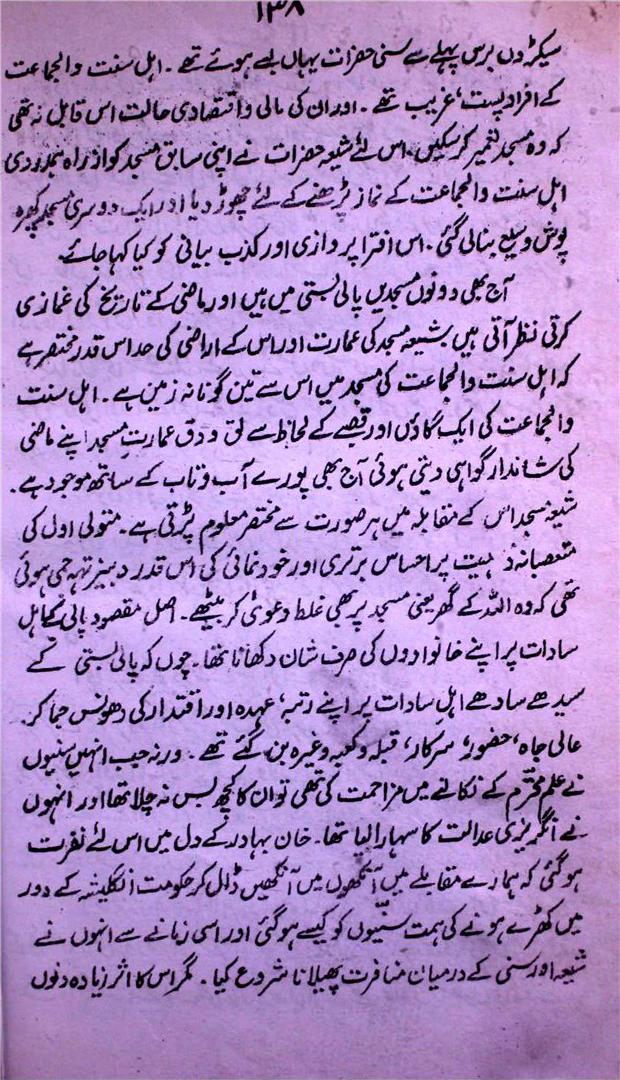 ۱۳۸
سیکڑوں برس پہلے سے سنی حضرات یہاں بسے ہوئے تھے ۔ اہل سنت والجماعت
کے افراد پست، غریب تھے ۔ اور ان کی مالی و اقتصادی حالت اس قابل نہ تھی
کہ وہ مسجد تعمیر کر سکیں اس لئے شیعہ حضرات نے اپنی سابق مسجد کو ازراہ ہمدردی
اہل سنت والجماعت کے نماز پڑھنے کے لئے چھوڑ دیا اور ایک دوسری مسجد کھپرہ
پوش وسیع بنالی گئی ۔ اس افترا پردازی اور کذب بیانی کو کیا کہا جائے ۔
آج بھی دونوں مسجدیں پالی بستی میں ہیں اور ماضی کے تاریخ کی غمازی
کرتی نظر آتی ہیں شیعہ مسجد کی عمارت اور اس کے اراضی کی حد اس قدر مختصر ہے
کہ اہل سنت والجماعت کی مسجد میں اس سے تین گونا نہ زمین ہے ۔ اہل سنت
والجماعت کی ایک گاؤں اور قصبے کے لحاظ سے لق و دق عمارتِ مسجد اپنے ماضی
کی شاندار گواہی دیتی ہوئی آج بھی پورے آب و تاب کے ساتھ موجود ہے ۔
شیعہ مسجد اس کے مقابلہ میں ہر صورت سے مختصر معلوم پڑتی ہے ۔ متولی اول کی
متعصبانہ ذہنیت پر احساس برتری اور خود نمائی کی اس قدر دبیز تہہ جمی ہوئی
تھی کہ وہ اللہ کے گھر یعنی مسجد پر بھی غلط دعویٰ کر بیٹھے ۔ اصل مقصود پالی کے اہل
سادات پر اپنے خانوادوں کی صرف شان دکھانا تھا ۔ چوں کہ پالی بستی کے
سیدھے سادھے اہل سادات پر اپنے رتبہ، عہدہ اور اقتدار کی دھونس جما کر
عالی جاہ، حضور، سرکار، قبلہ و کعبہ وغیرہ بن گئے تھے ۔ ورنہ جب انہیں سنیوں
نے علم محترم کے نکالنے میں مزاحمت کی تھی تو ان کا کچھ بس نہ چلا تھا اور انہوں
نے انگریزی عدالت کا سہارا لیا تھا ۔ خان بہادر کے دل میں اس لئے نفرت
ہو گئی کہ ہمارے مقابلے میں آنکھوں میں آنکھیں ڈال کر حکومت انگلیشہ کے دور
میں کھڑے ہونے کی ہمت سنّیوں کو کیسے ہو گئی اور اسی زمانے سے انہوں نے
شیعہ اور سنی کے درمیان منافرت پھیلانا شروع کیا ۔ مگر اس کا اثر زیادہ دنوں